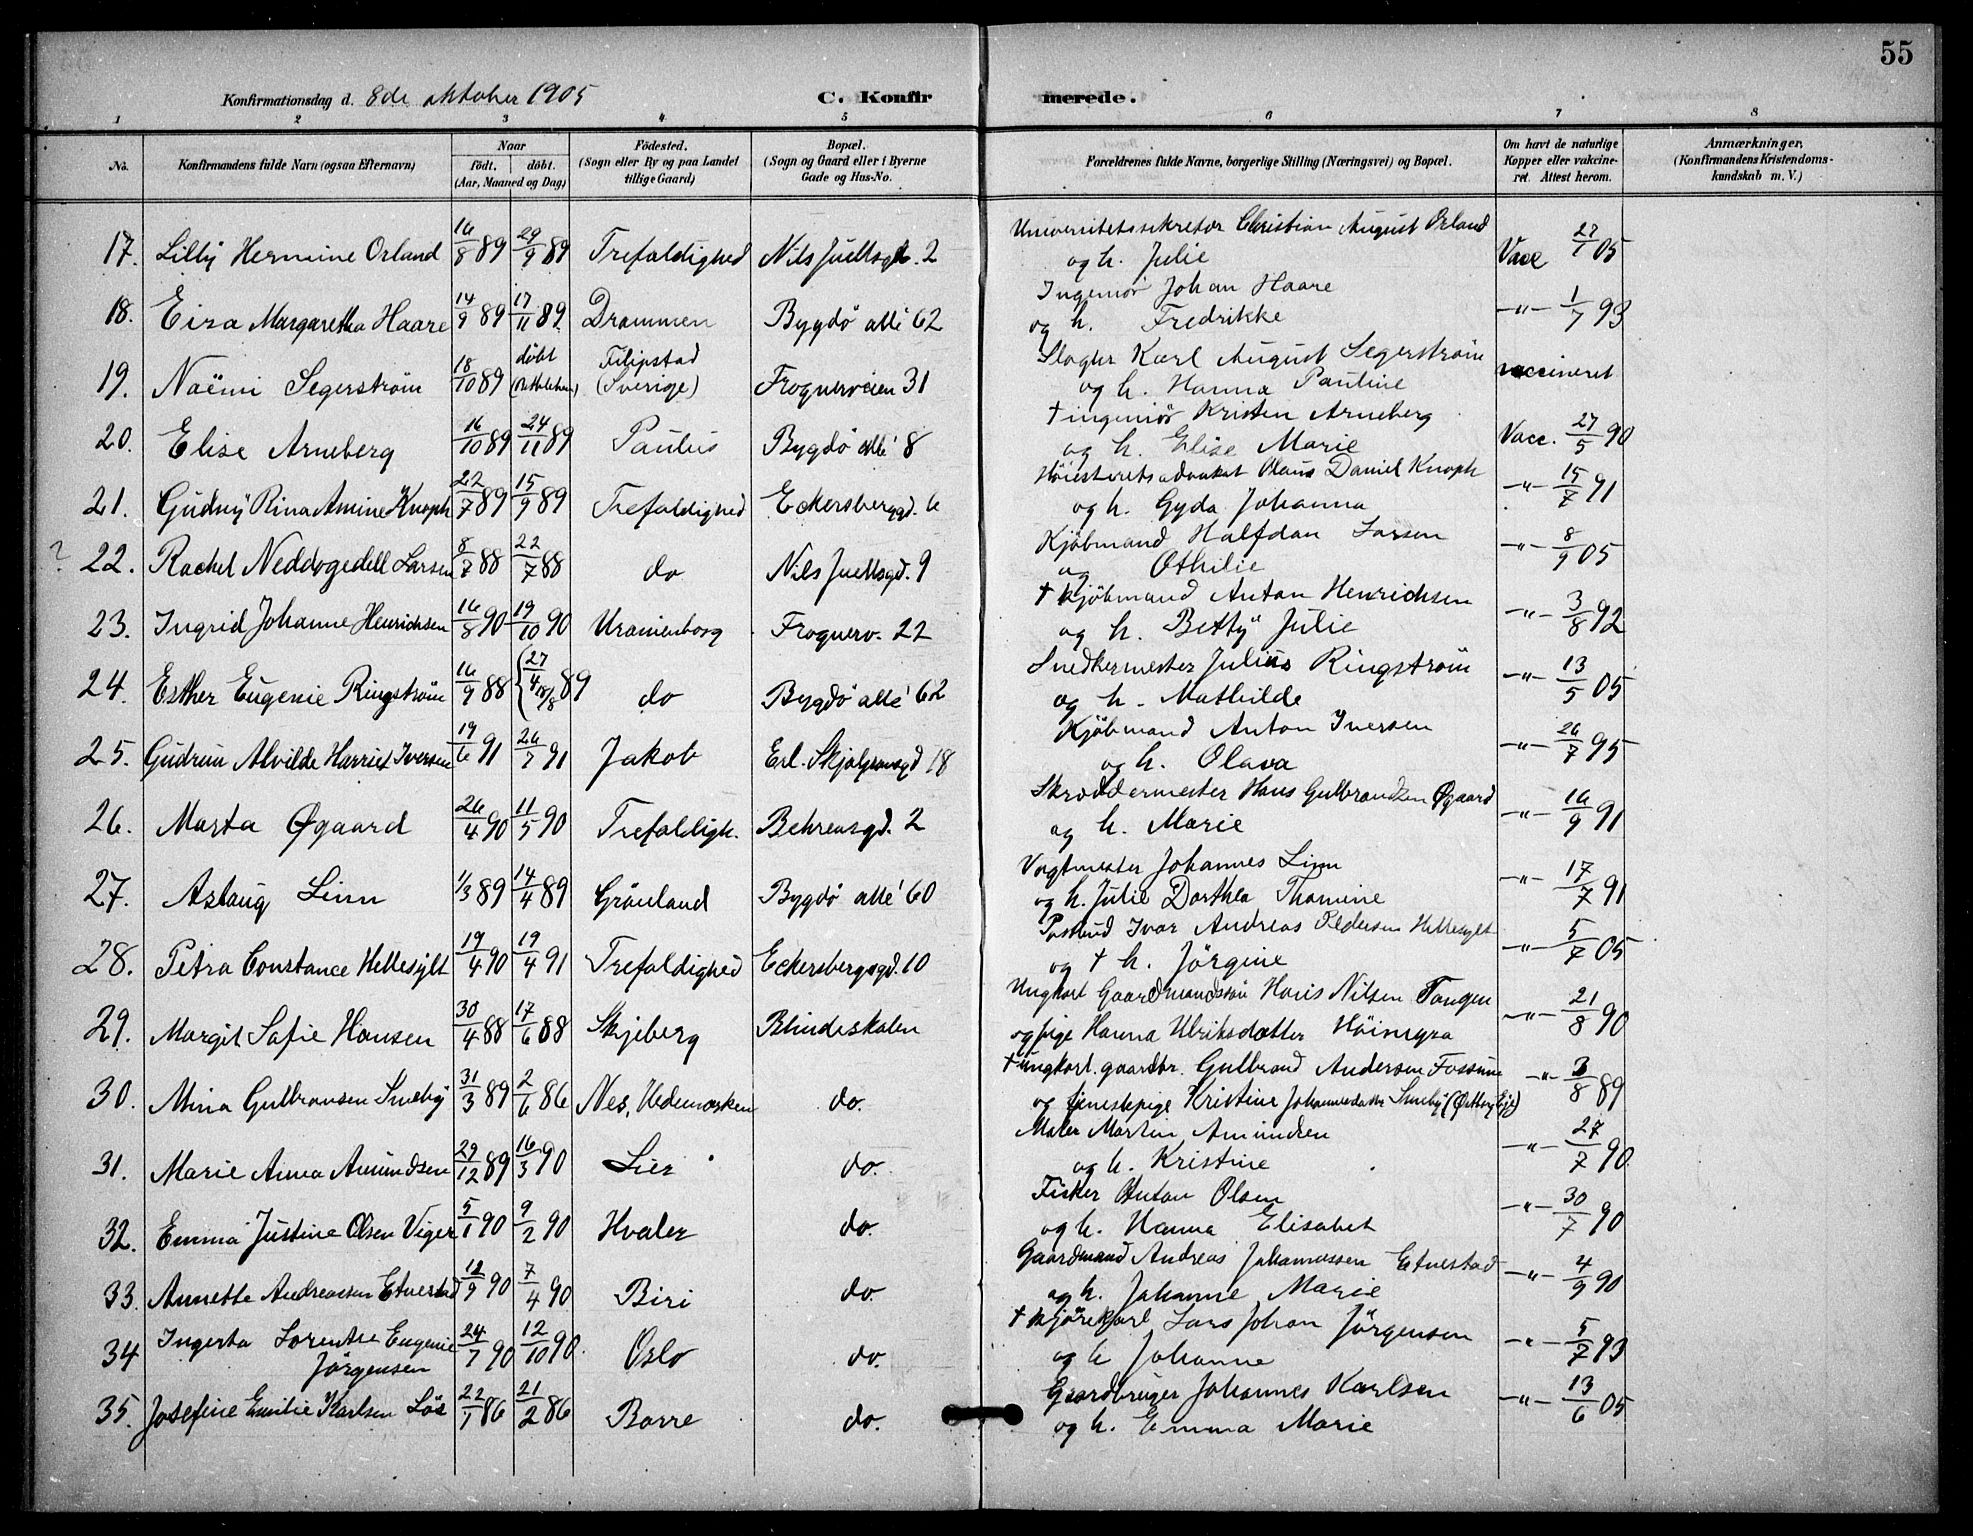 55
Konfirmationsdag d. 8de oktober 1905 C. Konfirmerede.
1 2 3 4 5 6 7 8
No. Konfirmandens fulde Navn (ogsaa Efternavn) Naar født. døbt. (Aar, Maaned og Dag) Fødested. (Sogn eller By og paa Landet tillige Gaard) Bopæl. (Sogn og Gaard eller i Byerne Gade og Hus-No. Forældrenes fulde Navne, borgerlige Stilling (Næringsvei) og Bopæl. Om havt de naturlige Kopper eller vakcineret. Attest herom. Anmærkninger, (Konfirmandens Kristendomskundskab m. V.)
17. Lilly Hermine Orland 16/8 89 29/9 89 Trefoldighed Nils Juellsgd. 2 Universitetssekretær Christian August Orland
og h. Julie Vacc 27/1 05
18. Eira Margaretha Haare 14/9 89 17/11 89. Drammen Bygdö allé 62 Ingeniör Johan Haare
og h. Fredrikke -"- 1/7 93
19. Naëmi Segerström 18/10 89 döbt (Bethlehem) Filipstad (Sverige) Frognerveien 31 Slagter Karl August Segerström
og h. Hanna Pauline vaccineret
20. Elise Arneberg 16/10 89 24/11 89 Paulus Bygdö allé 8 † ingeniör Kristen Arneberg
og h. Elise Marie Vacc. 27/5 90
21. Gudny Rina Amine Knoph 22/7 89 15/9 89 Trefoldighed Eckersberggd. 6 Höiesteretsadvokat Olaus Daniel Knoph
og h. Gyda Johanna -"- 15/7 91
? 22. Rachel Neddogedell Larsen 8/7 88 22/7 88 do Nils Juellsgd. 9 Kjöbmand Halfdan Larsen
og Othilie -"- 8/9 05
23. Ingrid Johanne Henrichsen 16/8 90 19/10 90 Uranienborg Frognerv. 22 † Kjöbmand Anton Henrichsen
og h. Betty Julie -"- 3/8 92
24. Esther Eugenie Ringström 16/9 88 { 27/4 18/8 89 do Bygdö allé 62 Snedkermester Julius Ringström
og h. Mathilde -"- 13/5 05
25. Gudrun Alvilde Harriet Iversen 19/6 91 26/7 91 Jakob Erl. Skjalgsonsgd 18 Kjöbmand Anton Iversen
og h. Olava -"- 26/7 95
26. Marta Øgaard 26/4 90 11/5 90 Trefoldigh. Behrensgd. 2 Skræddermester Hans Gulbrandsen Øgaard
og h. Marie -"- 16/9 91
27. Aslaug Linn 1/3 89 14/4 89 Grönland Bygdö allé 60 Vagtmester Johannes Linn
og h. Julie Dorthea Thomine -"- 17/7 91
28. Petra Constance Hellesylt 19/4 90 19/4 91 Trefoldighed Eckersbergsgd. 10 Postbud Ivar Andreas Pedersen Hellesylt
og † h. Jörgine -"- 5/7 05
29. Margit Sofie Hansen 30/4 88 17/6 88 Skjeberg Blindeskolen Ungkarl Gaardmandssön Hans Nilsen Tangen
og pige Hanna Ulriksdatter Höimyra -"- 21/8 90
30. Mina Gulbransen Smeby 31/3 89 2/6 86 Nes, Hedemarken do. † ungkarl. gaardbr. Gulbrand Andersen Fossum
og tjenestepige Kristine Johannesdatter Smeby -"- 3/8 89
31. Marie Anna Amundsen 29/12 89 16/3 90 Lier do. Maler Martin Amundsen
og h. Kristine -"- 27/7 90
32. Emma Justine Olsen Viger 5/1 90 9/2 90 Hvaler do. Fisker Anton Olsen
og h. Hanna Elisabet -"- 30/7 90
33. Annette Andreassen Etnestad 12/9 90 7/4 90 Biri do. Gaardmand Andreas Johannessen Etnestad
og h. Johanne Marie -"- 4/9 90
34 Ingerta Lorentse Eugenie
Jörgensen 24/7 90 12/10 90. Oslo do. † kjörekarl Lars Johan Jörgensen
og h Johanne -"- 5/7 93
35. Josefine Emilie Karlsen Lös 22/1 86 21/2 86 Borre do. Gaardbruger Johannes Karlsen
og h. Emma Marie -"- 13/6 05